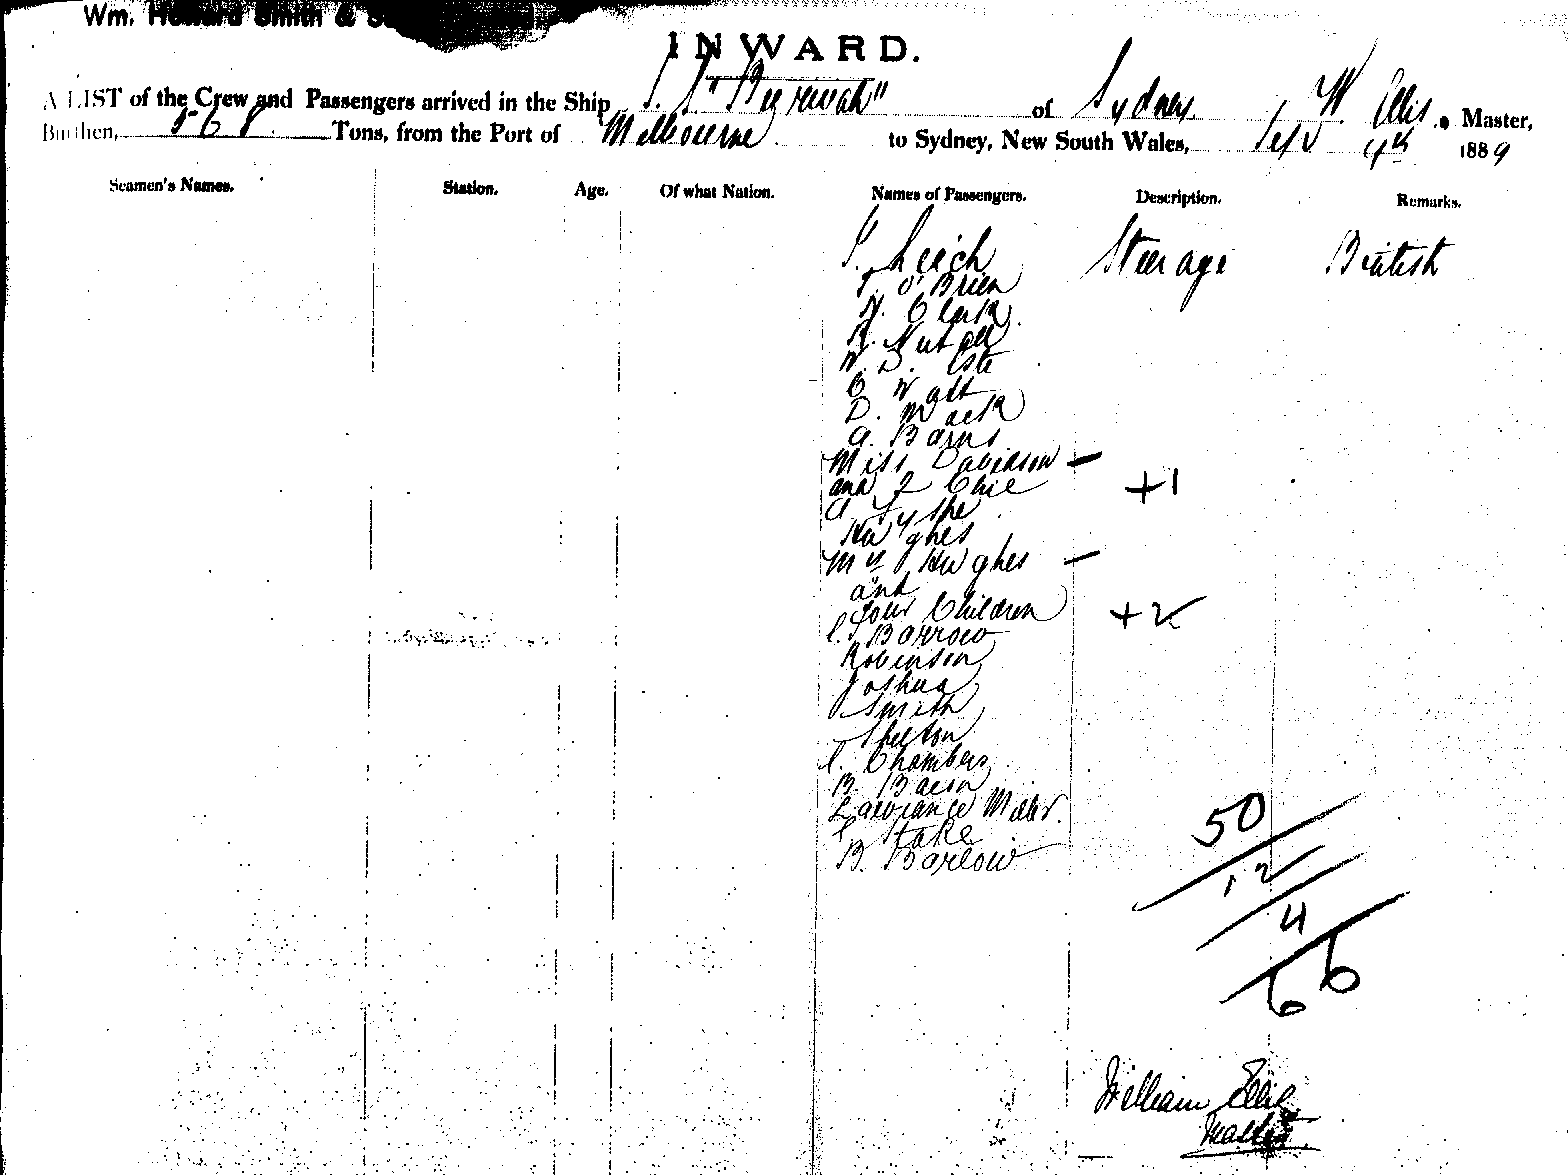 Wm. Howard Smith & S
INWARD.
A LIST of the Crew and Passengers arrived in the Ship S. S. "Burwah" of Sydney W. Ellis, Master,
Burthen, 568 Tons, from the Port of Melbourne to Sydney, New South Wales, 4th 1889
Seamen's Names. Station. Age. Of what Nation. Names of Passengers. Description. Remarks.
Leich Steerage British
T. O'Brien
H. Clark
R. Nutall
W. D.
Watt
D. Mack
A. Barns
Miss Davidson —
and +1
A. Fythe
Hughes
Mrs Hughes —
and
four Children +2
Barrow
Robinson
Joshua
Smith
Skelton
Chambers
B. Bacon
Lawrance Miller.
Stake
B. Barlow
50
12
4
66
William Ellis
Master